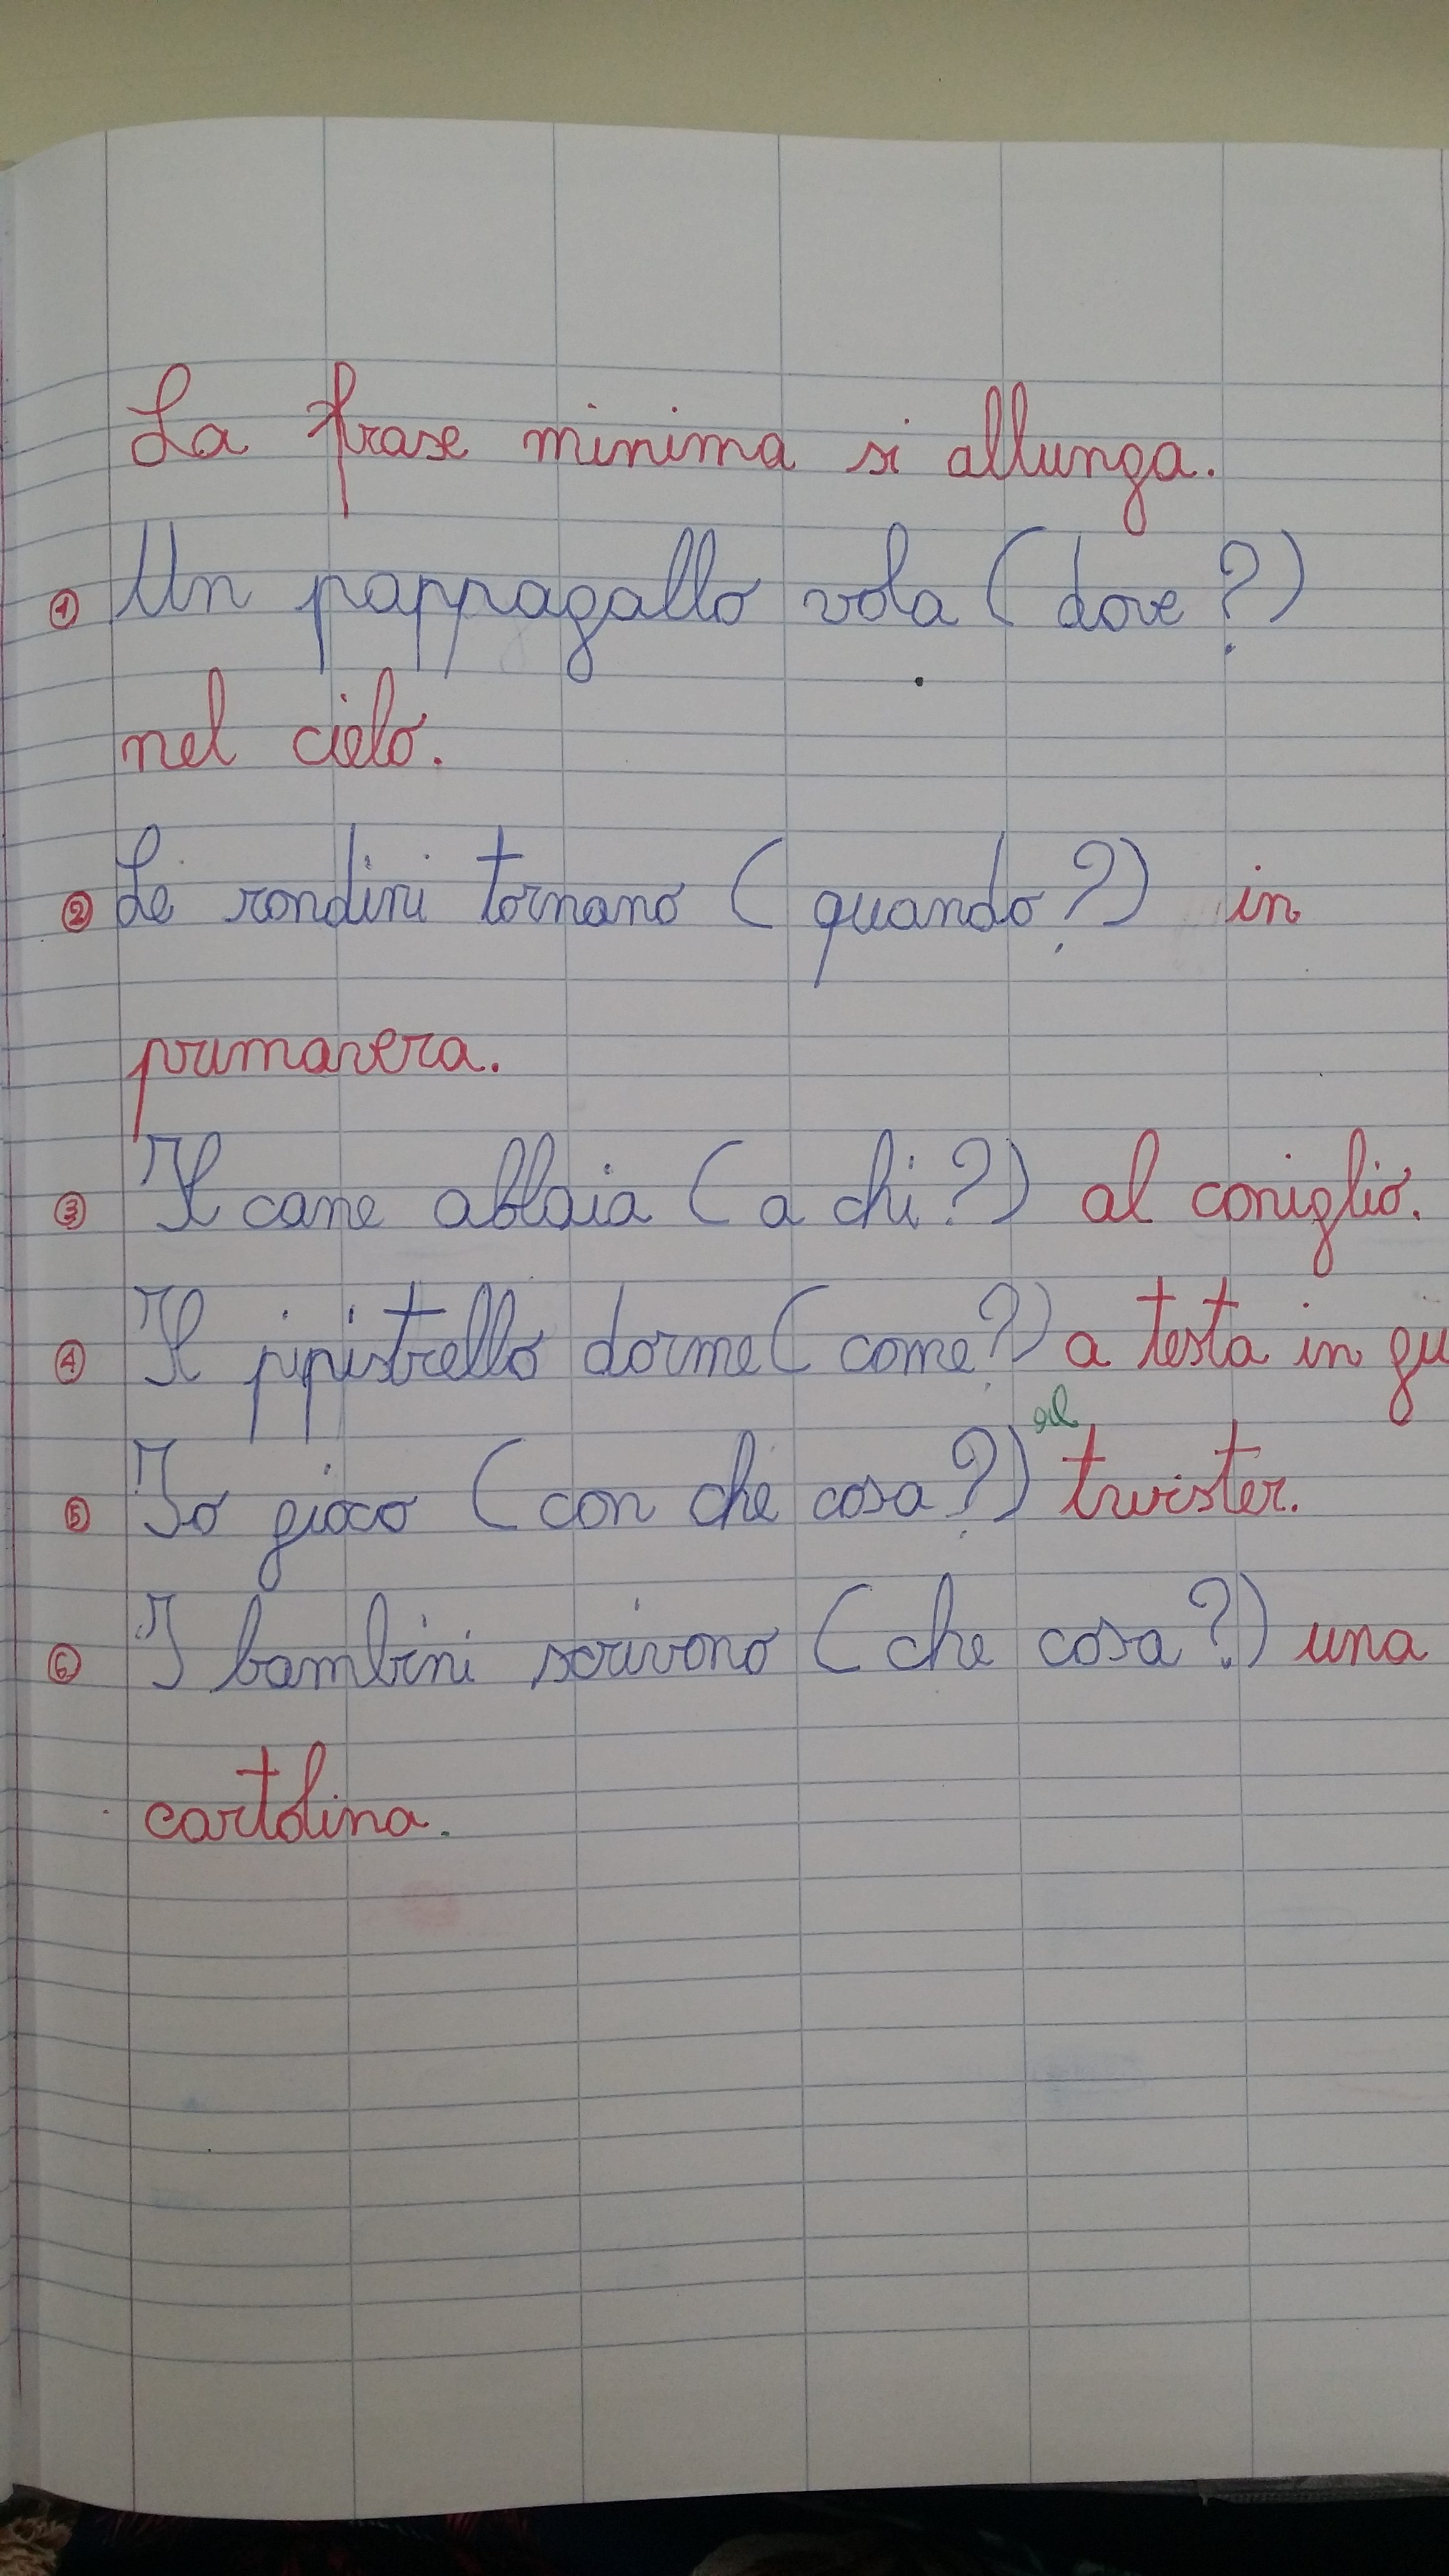 La frase minima si allunga.
① Un pappagallo vola (dove?)
nel cielo.
② Le rondini tornano (quando?) in
primavera.
③ Il cane abbaia (a chi?) al coniglio.
④ Il pipistrello dorme (come?) a testa in giu
al
⑤ Io gioco (con che cosa?) twister.
⑥ I bambini scrivono (che cosa?) una
cartolina.